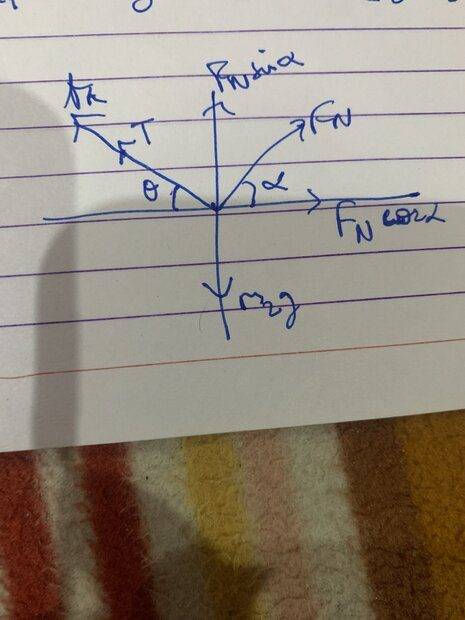 F_N sin α
fk
T
F_N
θ
α
F_N cos α
m₂g